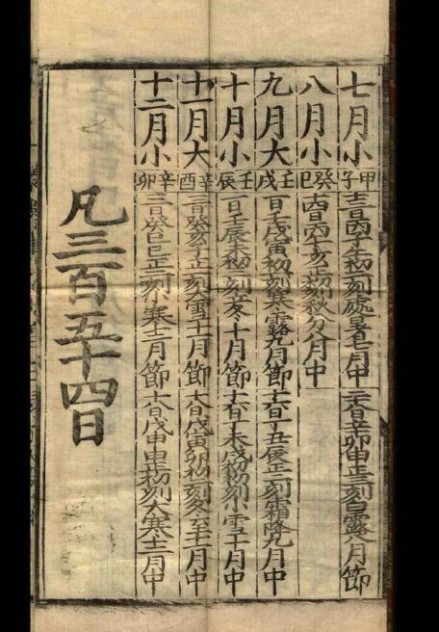 七月小甲子十三日丙子午初二刻處暑七月中二十八日辛卯申正三刻白露八月節
八月小癸巳十四日丙午亥正初刻秋分八月中
九月大壬戌一日壬戌寅初一刻寒露九月節十六日丁丑辰正二刻霜降九月中
十月小壬辰一日壬辰未初二刻立冬十月節十六日丁未戌初初刻小雪十月中
十一月大辛酉三日癸亥子正一刻大雪十一月節十八日戊寅卯初二刻冬至十一月中
十二月小辛卯三日癸巳巳正三刻小寒十二月節十八日戊申申正初刻大寒十二月中
凡三百五十四日